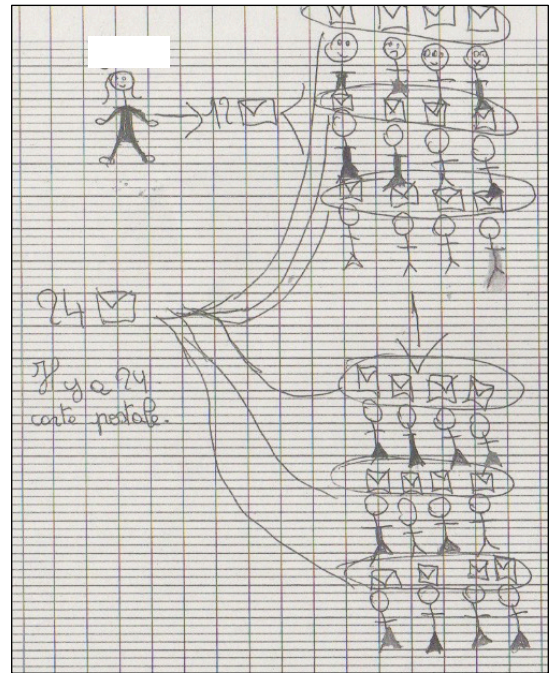 12
24
Il y a 24
carte postale.